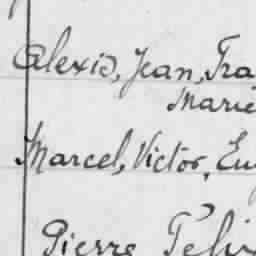 Alexis, Jean, Fra
Marie
Marcel, Victor, Eu
Pierre Feli